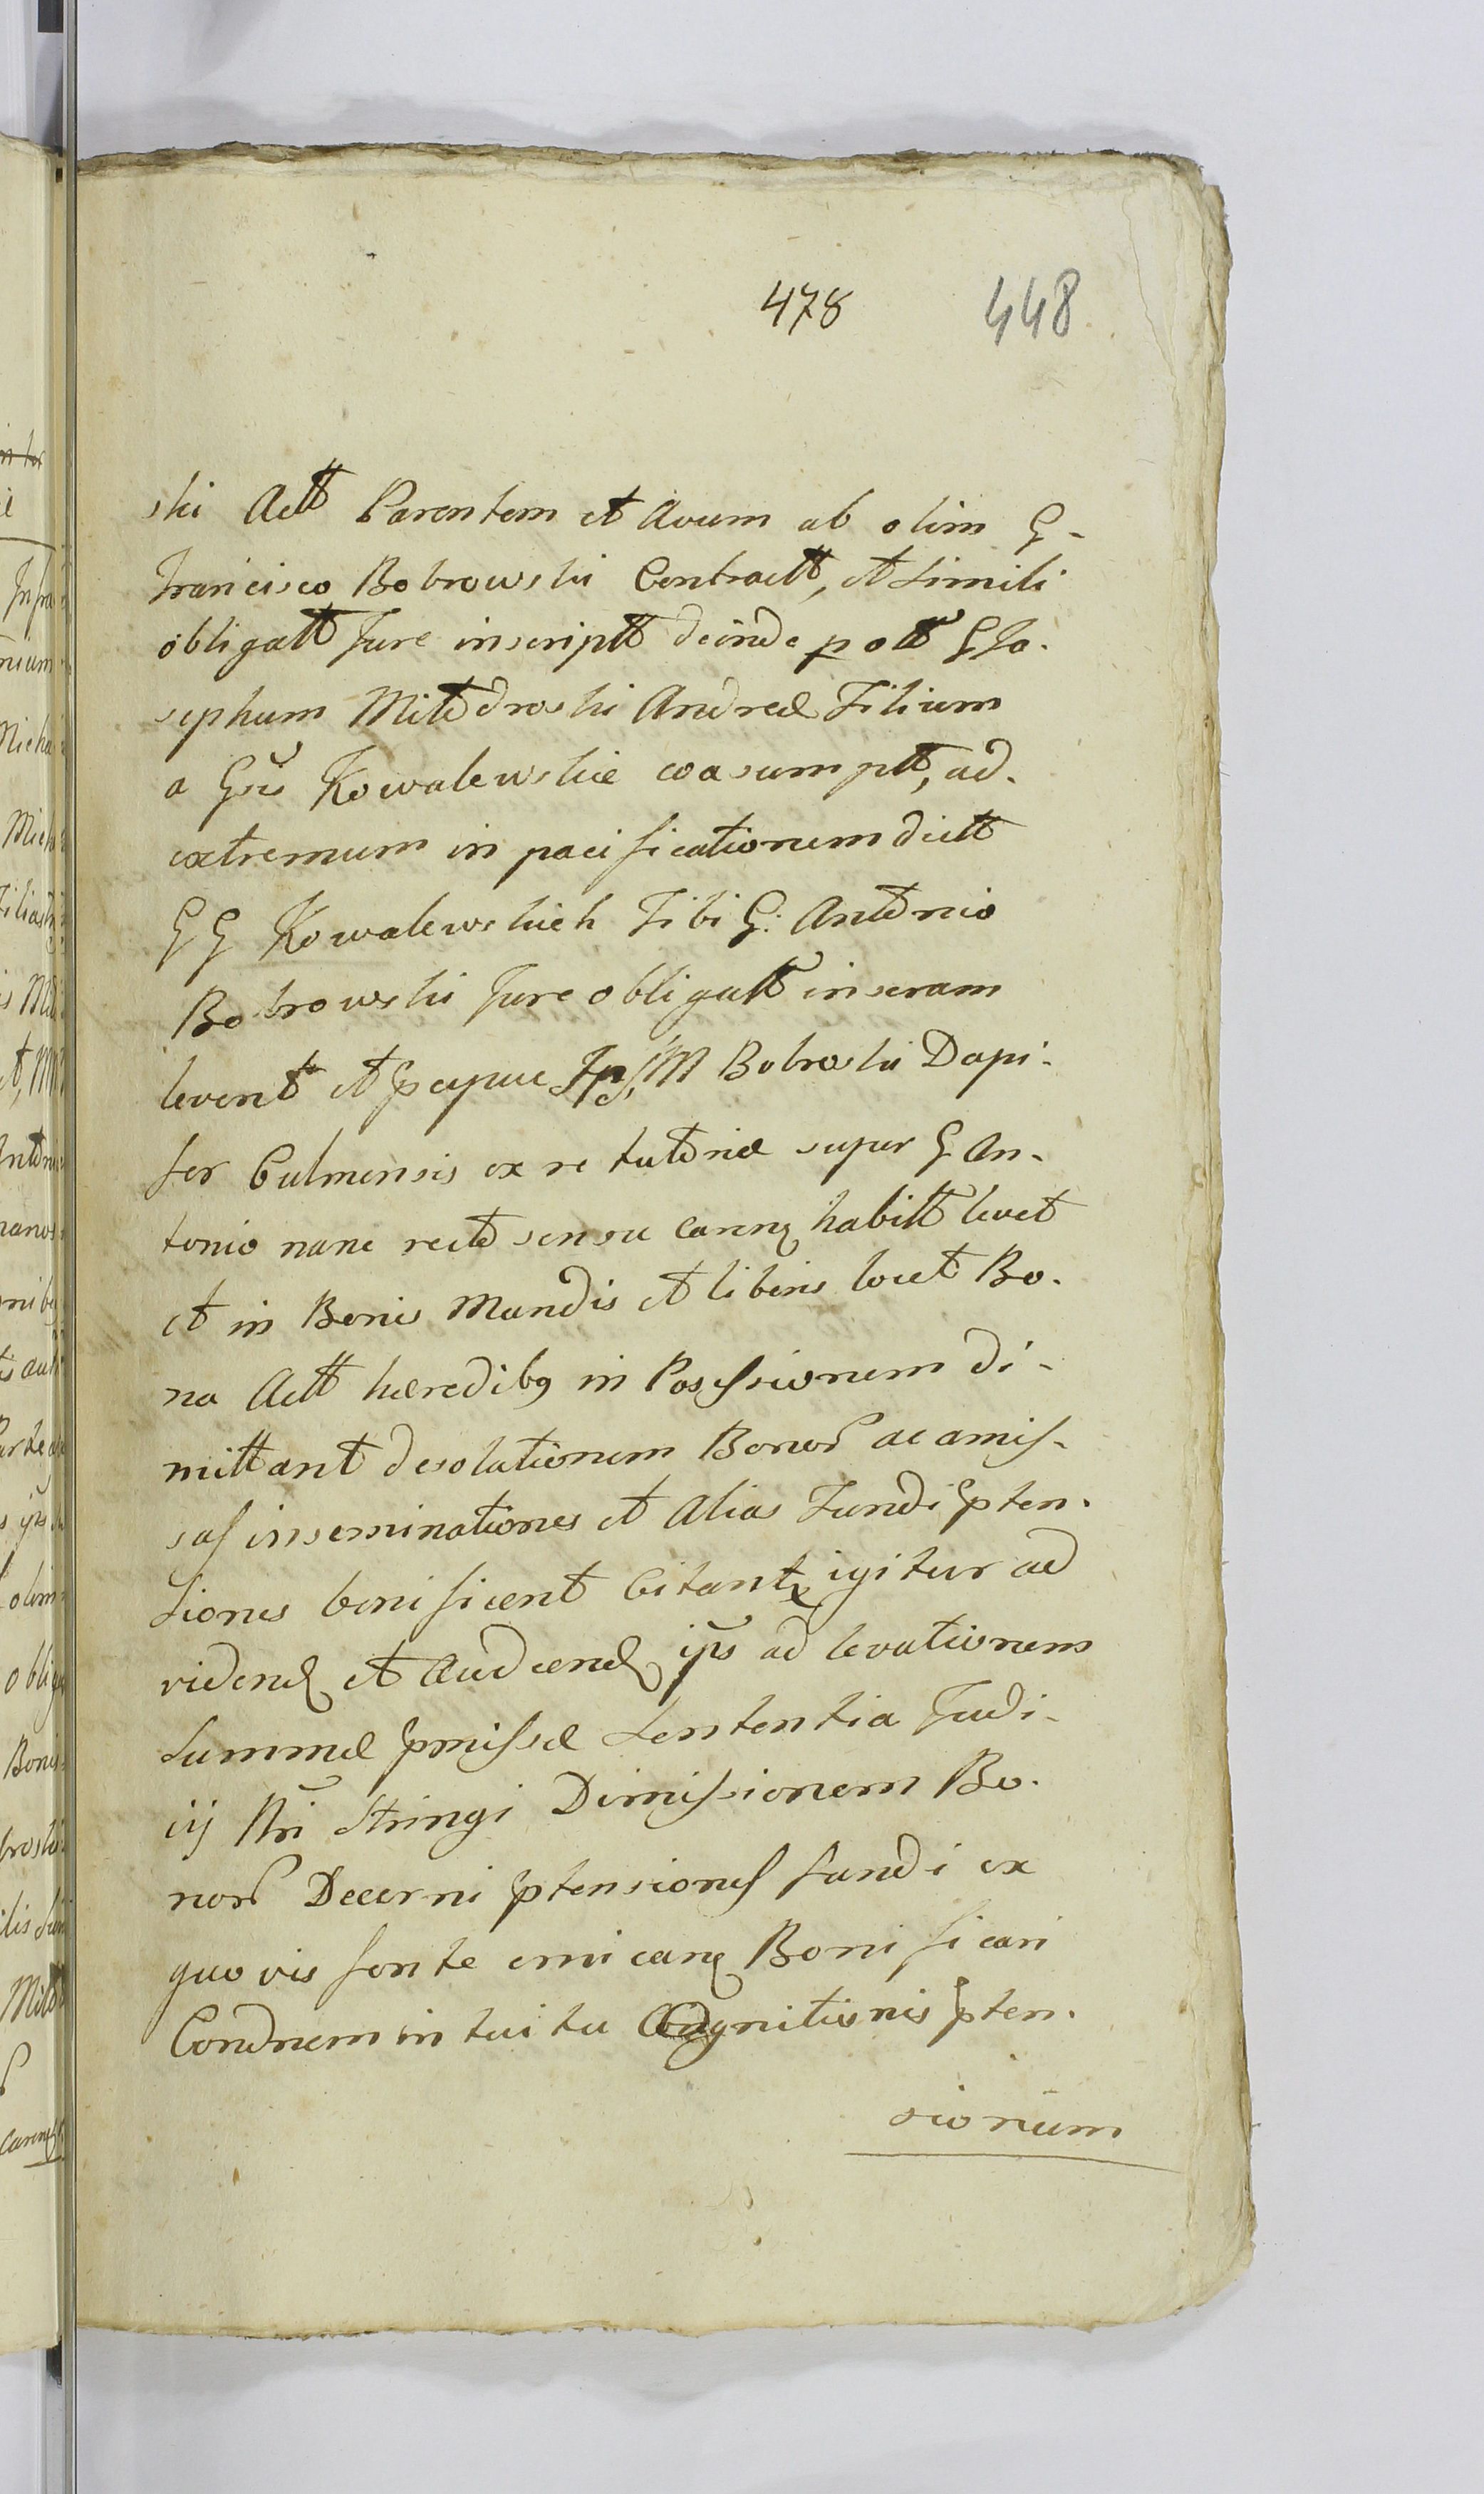 478 448
ski Actt Parentem et Avum ab olim G-
Francisco Bobrowski Contractt, et Simili
obligatt Jure inscriptt deinde p ott G Jo-
sephum Mittdroski Andreæ Filium
a Gsis Kowalewskie coasumptt, ad-
extremum in pacificationem dictt
GG Kowalewskich Tibi G: Anttonio
Bobrowski Jure obligatt inseram
levent et pcipue M Bobroski Dapi-
fer Culmensis ex re tutoriæ super G An-
tonio nanc recte sensu caren habitt levet
et in Bonis Mundis et liberis locet Bo-
na Actt hæredibg in Possessionem di-
mittant desolationem Bonor ac amis-
sas inseminationes et Alias Fundi pten-
siones bonificent Citant igitur ad
vidend et Audiend ijs ad levationem
Summæ pmissæ Sententia Judi-
cij Nri Stringi Dimissionem Bo-
nor Decerni ptensiones fundi ex
quovis fonte emican Bonificari
Condnem intuitu Cognitionis pten-
sionum